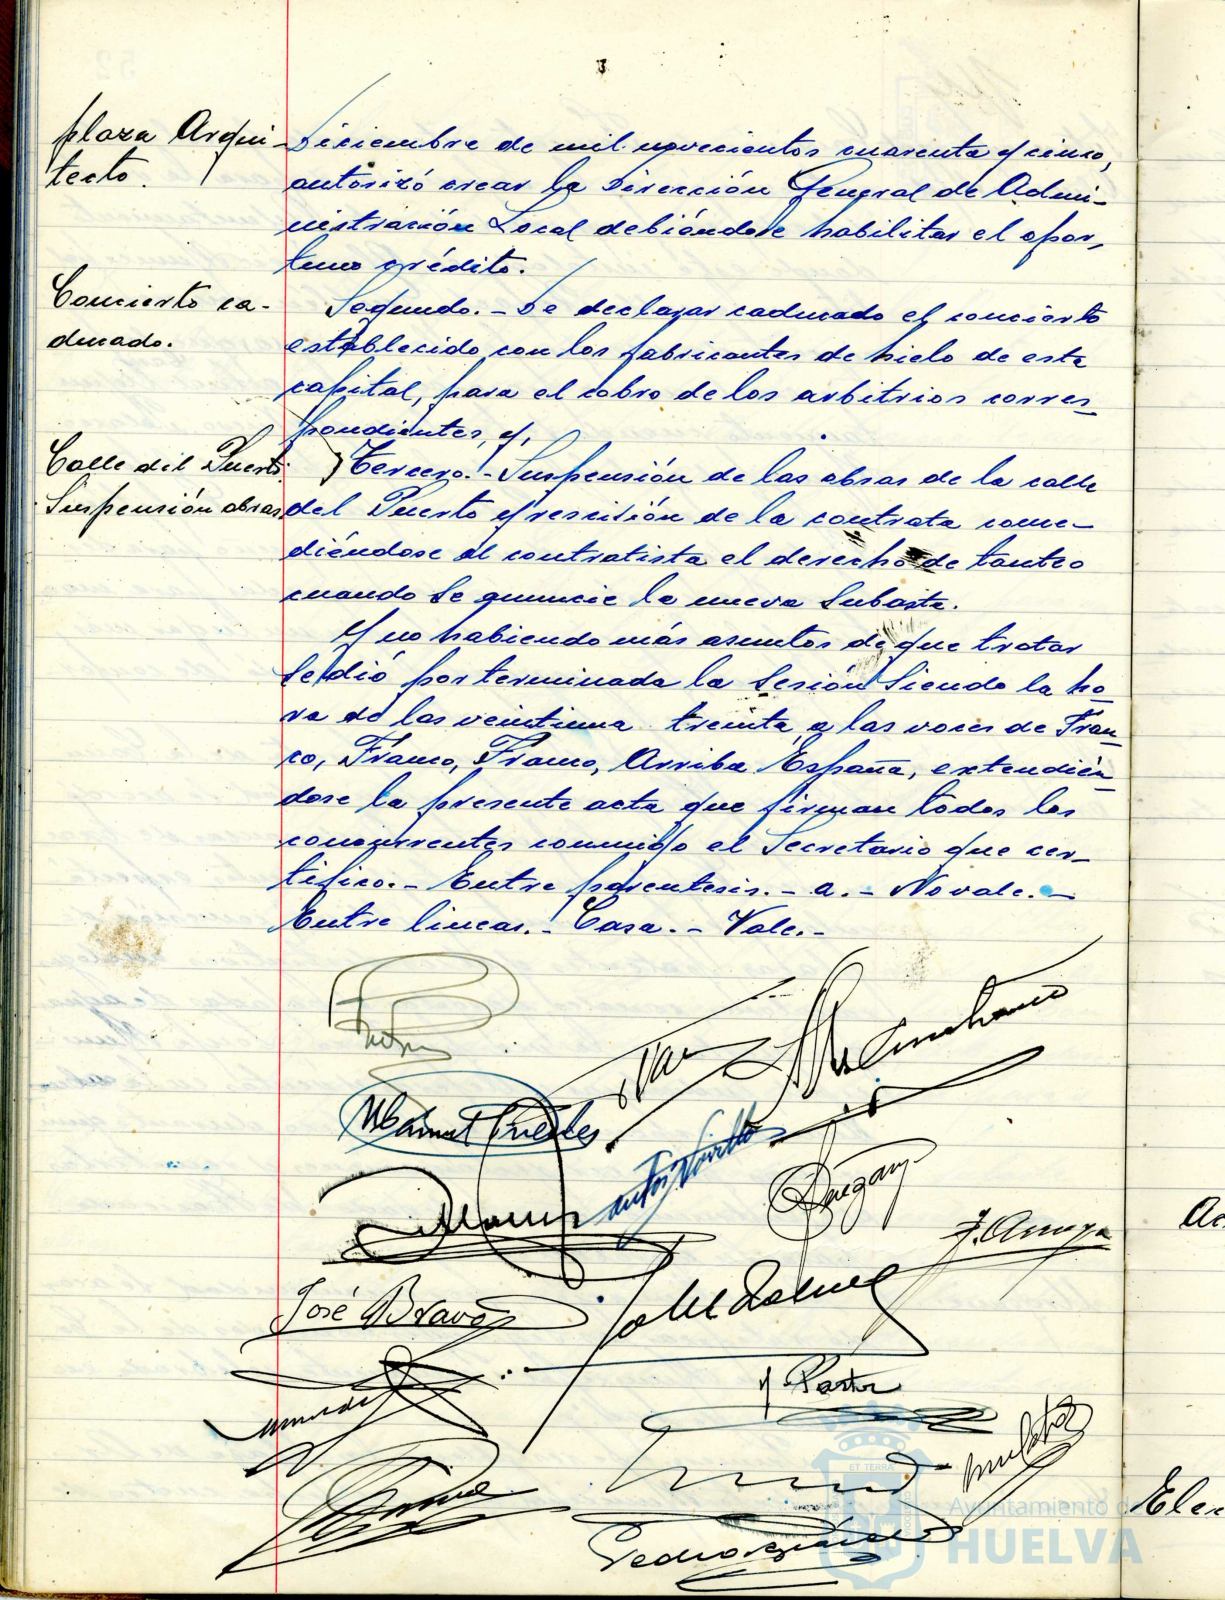 plaza Arqui-
tecto.
Diciembre de mil novecientos cuarenta y cinco,
autorizó crear la Dirección General de Admi-
nistración Local debiéndose habilitar el opor-
tuno crédito.
Concierto ca-
ducado.
Segundo.- Se declarar caducado el concierto
establecido con los fabricantes de hielo de esta
capital, para el cobro de los arbitrios corres-
pondientes, y,
Calle del Puerto
Suspensión obras
Tercero.- Suspensión de las obras de la calle
del Puerto y rescisión de la contrata conce-
diéndose al contratista el derecho de tanteo
cuando se anuncie la nueva subasta.
Y no habiendo más asuntos de que tratar
se dió por terminada la sesión siendo la ho-
ra de las veintiuna treinta, a las voces de Fran-
co, Franco, Franco, Arriba España, extendién-
dose la presente acta que firman todos los
concurrentes conmigo el Secretario que cer-
tifico.- Entre parentesis.- a.- No vale.-
Entre lineas.- Casa.- Vale.-
J. Arroyo
José Bravo
J. Pastor
Pedro
ET TERRA
Ayuntamiento de
HUELVA